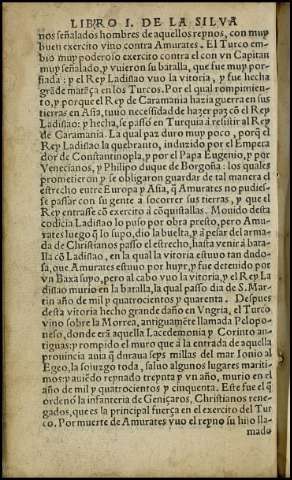 LIBRO I. DE LA SILVA
nos señalados hombres de aquellos reynos, con muy
buen exercito vino contra Amurates. El Turco em-
bio muy poderoso exercito contra el con vn Capitan
muy señalado, y vuieron su batalla, que fue muy por-
fiada: y el Rey Ladislao vuo la vitoria, y fue hecha
grãde matãça en los Turcos. Por el qual rompimien-
to, y porque el Rey de Caramania hazia guerra en sus
tierras en Asia, tuuo necessidad de hazer paz cõ el Rey
Ladislao: y hecha, se passo en Turquia a resistir al Rey
de Caramania. La qual paz duro muy poco, porq̃ el
Rey Ladislao la quebranto, induzido por el Empera-
dor de Constantinopla, y por el Papa Eugenio, y por
Venecianos, y Philipo duque de Borgoña: los quales
prometieron y se obligaron guardar de tal manera el
estrecho entre Europa y Asia, q̃ Amurates no pudies-
se passar con su gente a socorrer sus tierras, y que el
Rey entrasse cõ exercito a cõquistallas. Mouido desta
codicia Ladislao lo puso por obra presto, pero Amu-
rates luego q̃ lo supo, dio la buelta, y a pesar del arma-
da de Christianos passo el estrecho, hasta venir a bata-
lla cõ Ladislao, en la qual la vitoria estuuo tan dudo-
sa, que Amurates estuuo por huyr, y fue detenido por
vn Baxa suyo, pero al cabo vuo la vitoria, y el Rey La
dislao murio en la batalla, la qual passo dia de S. Mar-
tin año de mil y quatrocientos y quarenta. Despues
desta vitoria hecho grande daño en Vngria, el Turco
vino sobre la Morrea, antiguamẽte llamada Pelopo-
neso, donde era aquella Lacedemonia y Corinto an-
tiguas: y rompido el muro que à la entrada de aquella
prouincia auia q̃ duraua seys millas del mar Ionio al
Egeo, la sojuzgo toda, saluo algunos lugares mariti-
mos: y auiẽdo reynado treynta y vn año, murio en el
año de mil y quatrocientos y cinquenta. Este fue el q̃
ordenò la infanteria de Geniçaros, Christianos rene-
gados, que es la principal fuerça en el exercito del Tur
co. Por muerte de Amurates vuo el reyno su hijo lla-
mado